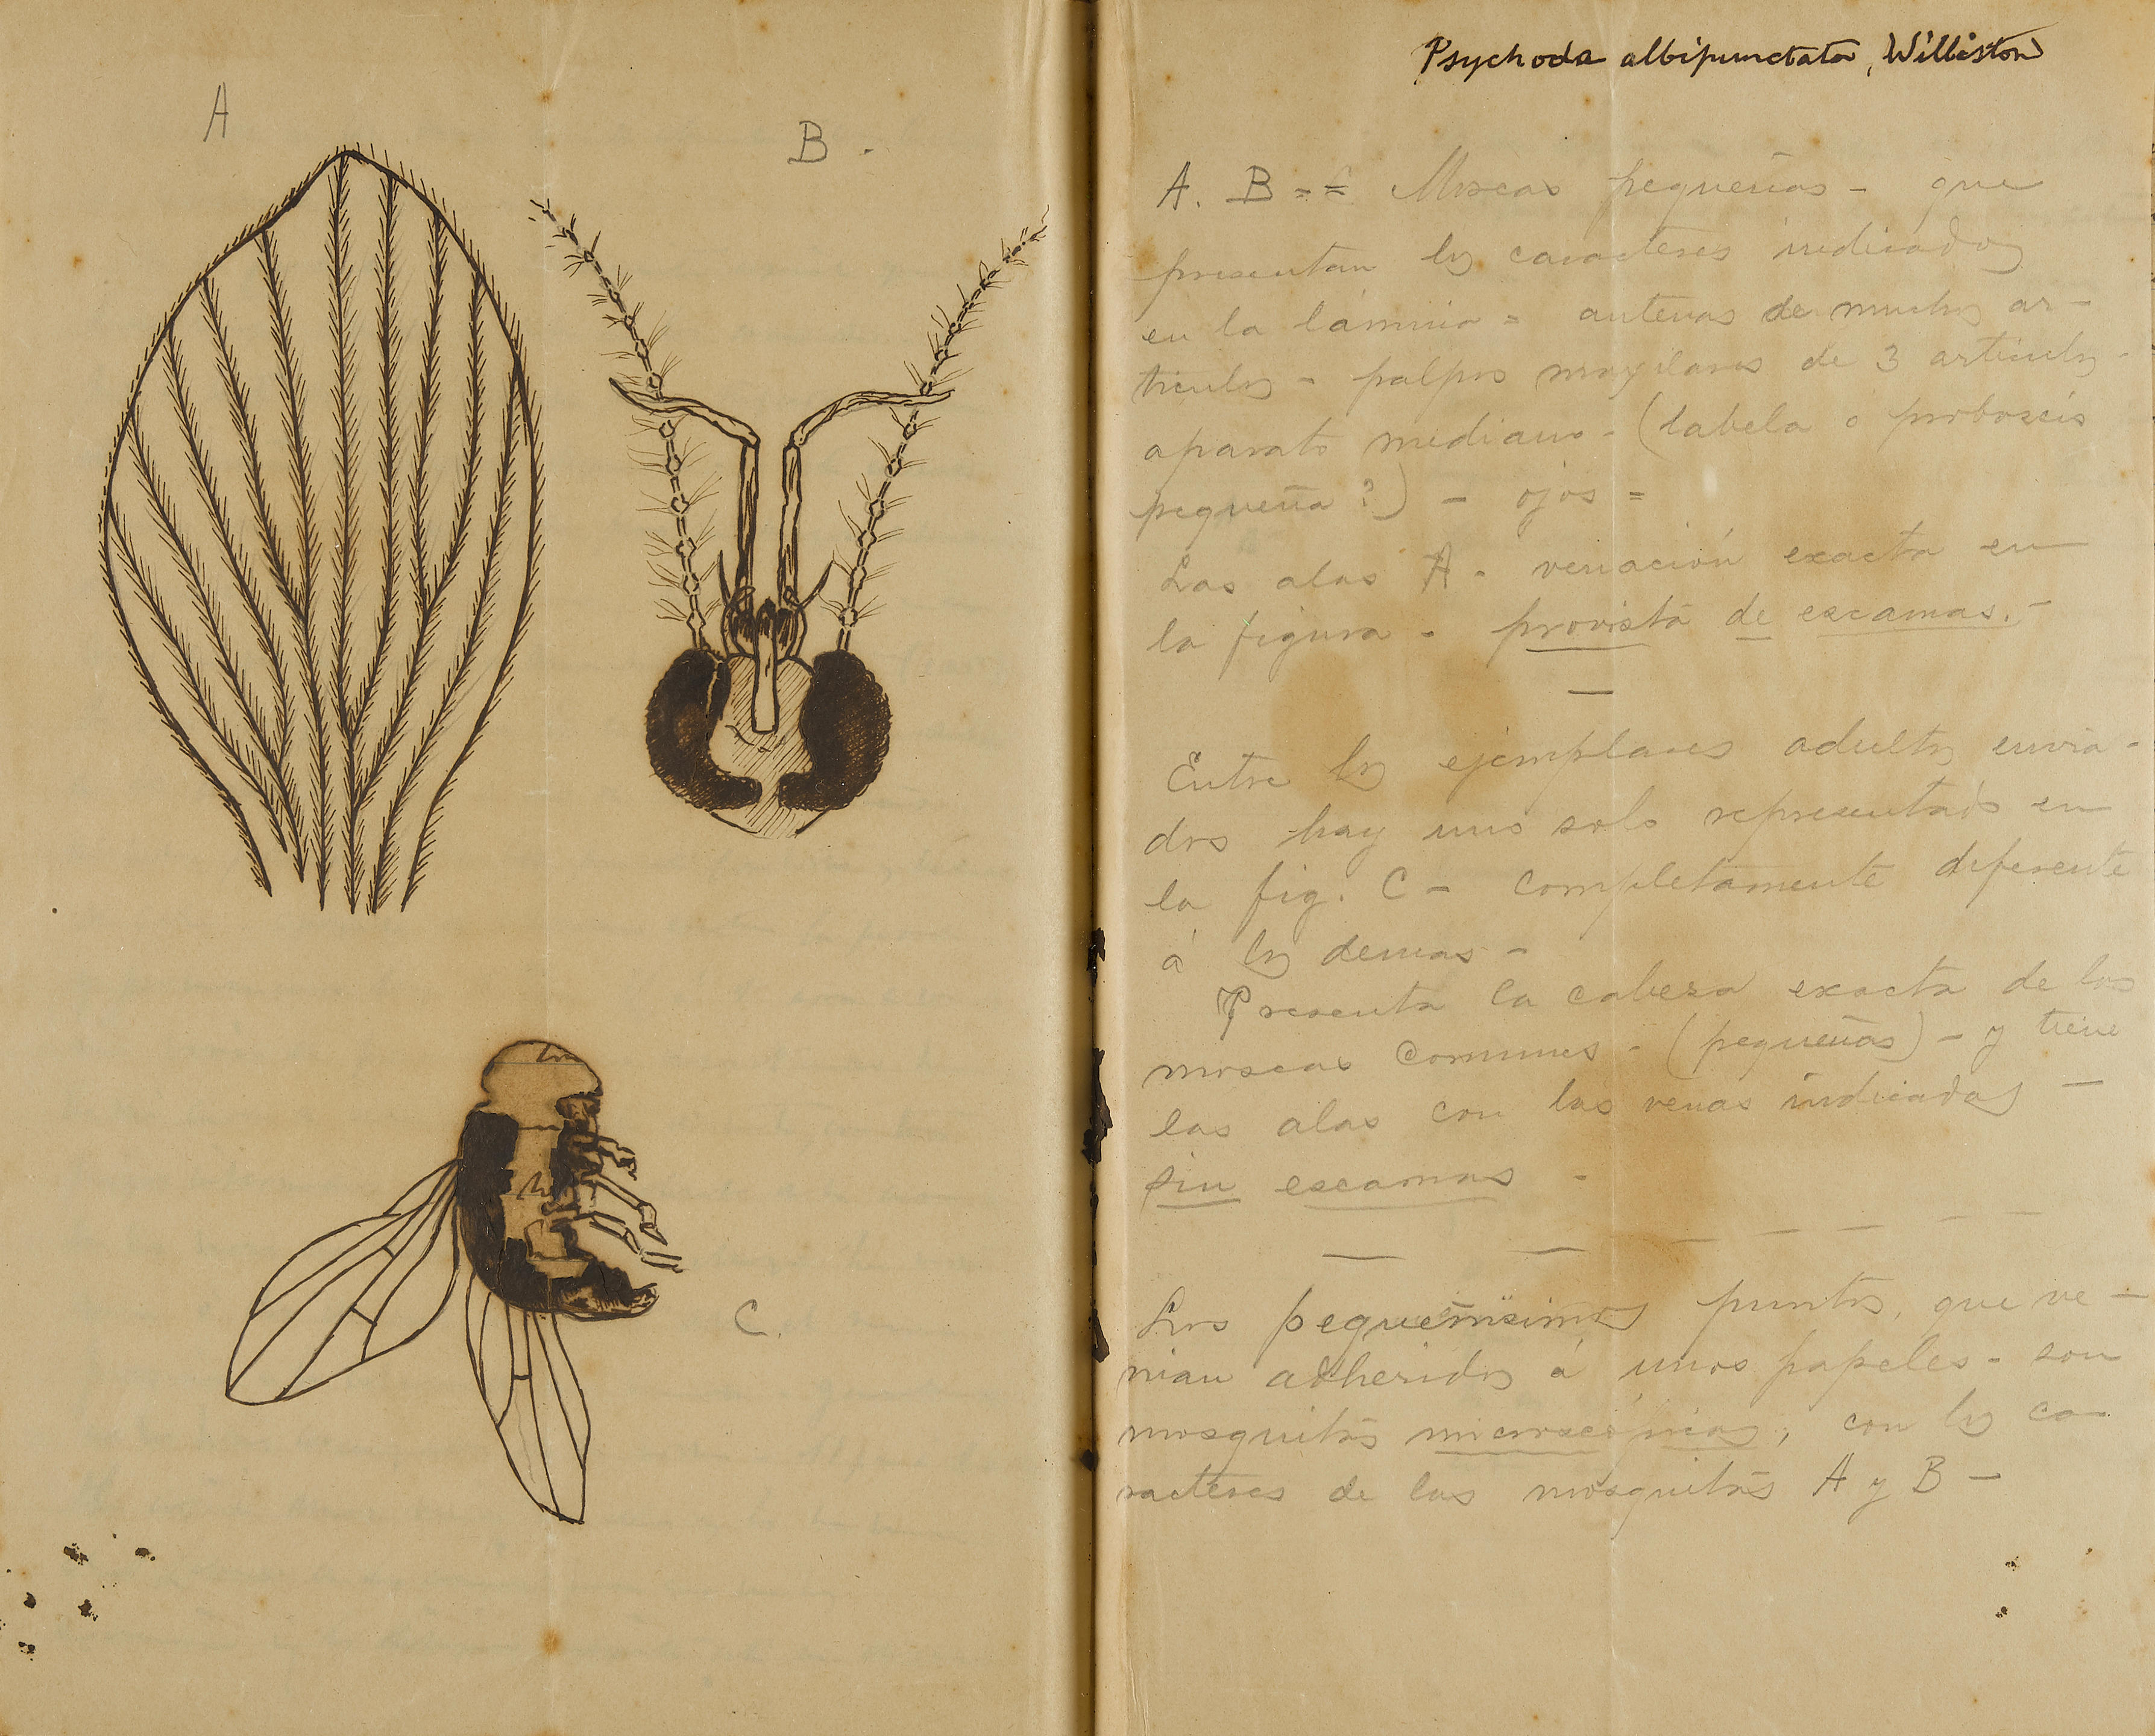 A
B.
C.
Psychoda albipunctata, Williston
A. B = = Moscas pequeñas - que
presentan los caracteres indicados
en la lámina = antenas de muchos ar-
ticulos - palpos maxilares de 3 articulos -
aparato mediano - (labela o proboscis
pequeña?) - ojos =
Las alas A - venación exacta en
la figura - provista de escamas. -
Entre los ejemplares adultos envia-
dos hay uno solo representado en
la fig. C - completamente diferente
á los demas -
Presenta la cabeza exacta de las
moscas comunes - (pequeñas) - y tiene
las alas con las venas indicadas -
sin escamas -
Los pequeñisimos puntos, que ve-
nian adheridos á unos papeles - son
mosquitos microscópicos, con los ca-
racteres de los mosquitos A y B -